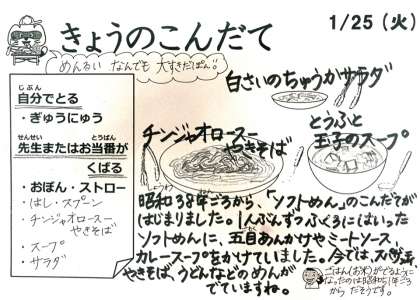 きょうのこんだて
1/25（火）
めんるい なんでも 大すきだぱん。
じぶん
自分でとる
・ぎゅうにゅう
せんせい とうばん
先生またはお当番が
くばる
・おぼん・ストロー
・はし・スプーン
・チンジャオロースー
やきそば
・スープ
・サラダ
白さいのちゅうかサラダ
チンジャオロースー
やきそば
とうふと
玉子のスープ
昭和38年ごろから、「ソフトめん」のこんだてが
はじまりました。1人ぶんずつふくろにはいった
ソフトめんに、五目あんかけやミートソース
カレースープをかけていました。今では、スパゲティ
やきそば、うどんなどのめんが
でていますね。
ごはん(お米)がでるように
なったのは昭和51年ごろ
からだそうです。